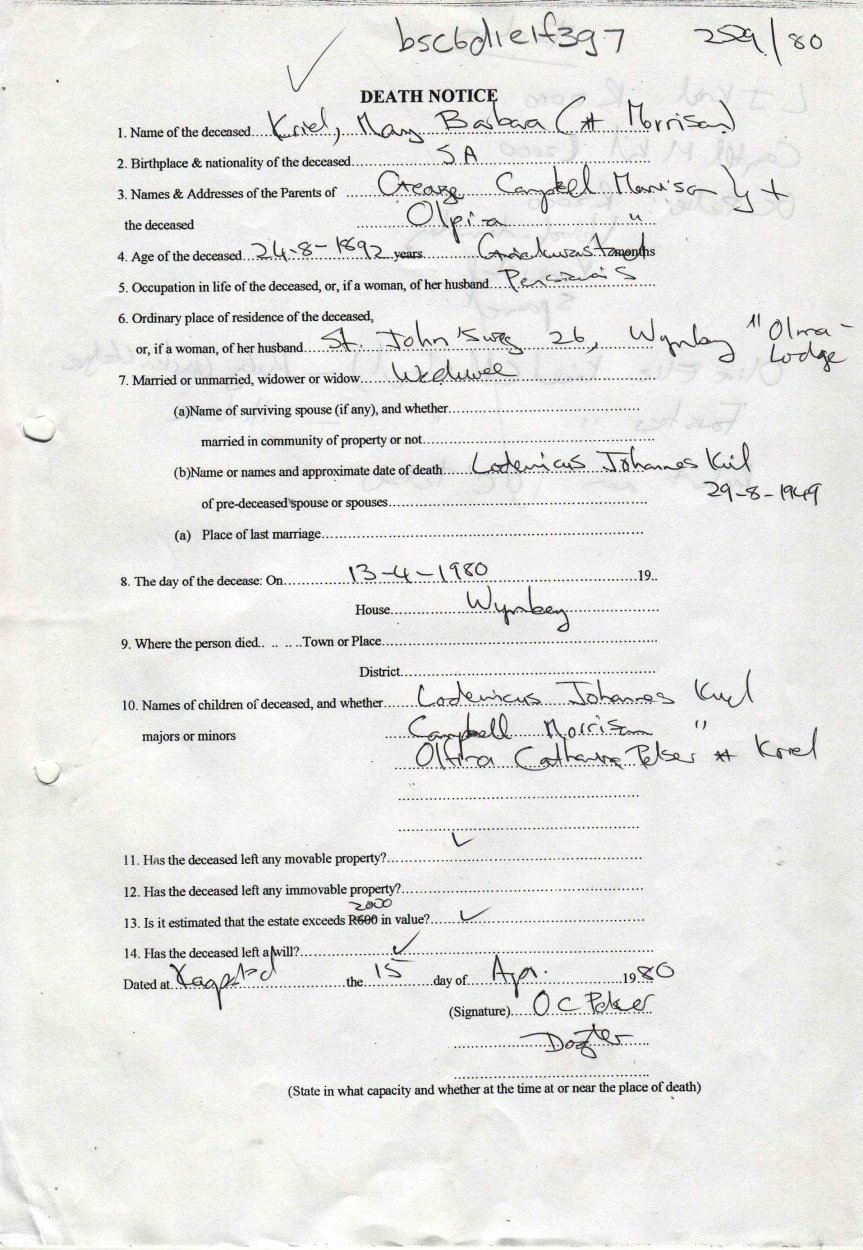 bsc6d1e1f3g7 2529/80
DEATH NOTICE
1. Name of the deceased....Kriel, May Barbara (* Morrison)
2. Birthplace & nationality of the deceased....SA
3. Names & Addresses of the Parents of George Campbell Morrison } +
the deceased Olpira "
4. Age of the deceased 24-8-1892 years Griekwastad months
5. Occupation in life of the deceased, or, if a woman, of her husband...Pensionaris
6. Ordinary place of residence of the deceased,
or, if a woman, of her husband....St. John'sweg 26, Wynberg "Olma-
Lodge
7. Married or unmarried, widower or widow....Weduwee
(a)Name of surviving spouse (if any), and whether
married in community of property or not
(b)Name or names and approximate date of death....Lodewicus Johannes Kriel
of pre-deceased spouse or spouses 29-8-1949
(a) Place of last marriage
8. The day of the decease: On 13-4-1980 19..
House Wynberg
9. Where the person died.. .. .. ..Town or Place
District
10. Names of children of deceased, and whether Lodewicus Johannes Kriel
majors or minors Campbell Morrison "
Olfira Catharina Pelser * Kriel
11. Has the deceased left any movable property? ✓
12. Has the deceased left any immovable property?
2000
13. Is it estimated that the estate exceeds R600 in value? ✓
14. Has the deceased left a will? ✓
Dated at Kaapstad the 15 day of Apr. 1980
(Signature) O C Pelser
Dogter
(State in what capacity and whether at the time at or near the place of death)